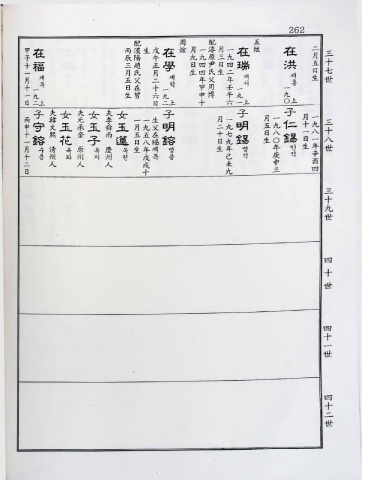 262
三十七世
二月五日生
在洪 재홍 上一九〇
五炫
在瑞 재서 上一九一
一九四二年壬午六
月三日生
配漆原尹氏父周博
一九四四年甲申十
月九日生
周炫
在學 재학 上一九二
戊午正月二十六日
生
配漢陽趙氏父在
丙辰三月五日生
在福 재복 上一九二
甲子十一月十一日
三十八世
一九八一年辛酉四
月十一日生
子仁錫 인석
一九八〇年庚申三
月五日生
子明錫 명석
一九七九年己未九
月二十日生
子明鎔 명용
生父在福재복
一九五八年戊戌十
一月五日生
女玉蓮 옥련
夫李舜雨 慶州人
女玉子 옥자
夫元承 原州人
女玉花 옥화
夫韓文熙 清州人
子守鎔 수용
丙申十一月十二日
三十九世
四十世
四十一世
四十二世